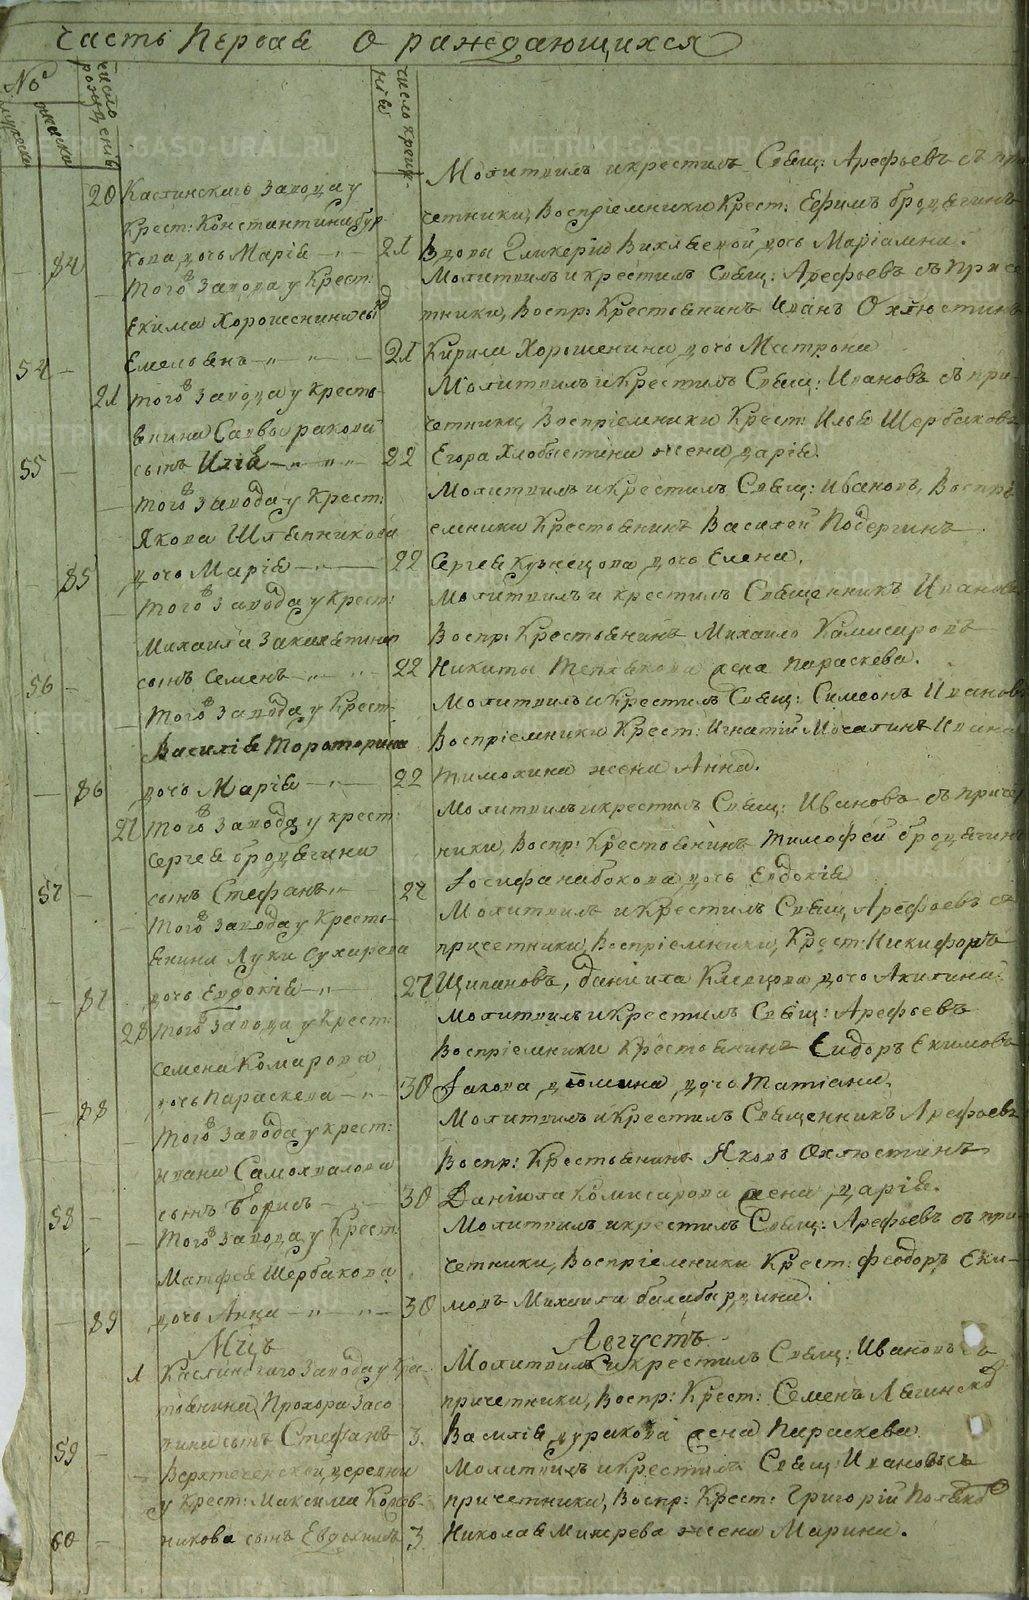 METRIKI.GASO-URAL.RU
Часть Первая О раждающихся
№
мужеска
женска
число рождений
число крещенія
20 Каслинскаго завода у
Крест: Константина Бур
кова дочь Марія 21
84
Молитвилъ и крестилъ Свящ: Арефьевъ съ при
четники, Воспріемники Крест: Ефимъ Бродягинъ
Вдовы Гликеріи дочь Маріамна.
Того завода у Крест:
Екима Хорошенина сы
Емельянъ 21
54
Молитвилъ и крестилъ Свящ: Арефьевъ съ приче
тники, Воспр: Крестьянинъ Иванъ Охлюстинъ
Кирила Хорошенина дочь Матрона
21 Того завода у Кресть
янина Савы
сынъ Илія 22
55
Молитвилъ и Крестилъ Свящ: Ивановъ съ при
четники, Воспріемники Крест: Илья Щербаковъ
Егора Хлобыстина жена Дарія.
Того завода у Крест:
Якова Шляпникова
дочь Марія 22
85
Молитвилъ и крестилъ Свящ: Ивановъ, Воспрі
емники Крестьянинъ Василей Подергинъ
Сергея Кузнецова дочь Елена.
Того завода у Крест:
Михаила
сынъ Семенъ 22
56
Молитвилъ и крестилъ Священникъ Ивановъ
Воспр: Крестьянинъ Михайло Камисаровъ
Никиты Теплякова жена Параскева.
Того завода у Крест:
Василія
дочь Марія 22
86
Молитвилъ и Крестилъ Свящ: Симеонъ Ивановъ
Воспріемники Крест: Игнатій Мочалинъ Ивана
Тимохина жена Анна.
27 Того завода у крест:
Сергея Бродягина
сынъ Стефанъ 27
57
Молитвилъ и крестилъ Свящ: Ивановъ съ приче
ники, Воспр: Крестьянинъ Тимофей Бродягинъ
Іосифа Набокова дочь Евдокія
Того завода у Кресть
янина Луки Сухарева
дочь Евдокія 27
87
Молитвилъ и Крестилъ Свящ: Арефьевъ съ
причетники, Воспріемники, Крест: Никифоръ
Щипановъ, Даніила дочь Акилина.
28 Того завода у Крест:
Семена Комарова
дочь Параскева 30
88
Молитвилъ и Крестилъ Свящ: Арефьевъ
Воспріемники Крестьянинъ Сидоръ Екимовъ
Іакова дочь Татіана.
Того завода у крест:
Ивана Самохвалова
сынъ Борисъ 30
58
Молитвилъ и Крестилъ Священникъ Арефьевъ
Воспр: Крестьянинъ Яковъ Охлюстинъ
Даніила Комисарова жена Дарія.
Того завода у Крест:
Матфея Щербакова
дочь Анна 30
89
Молитвилъ и крестилъ Свящ: Арефьевъ съ при
четники, Воспріемники Крест: Феодоръ Еки-
мовъ Михаила Балабардина.
Мцъ Августъ
1 Каслинскаго завода у Кре
стьянина Прохора Засо
сынъ Стефанъ 3.
59
Молитвилъ и крестилъ Свящ: Ивановъ съ
причетники, Воспр: Крест: Семенъ
Василія Дуракова жена Параскева.
Верхтеченской деревни
у Крест: Максима
никова сынъ Евдокимъ 3
60
Молитвилъ и Крестилъ Свящ: Ивановъ съ
причетники, Воспр: Крест: Григорій
Николая жена Марина.